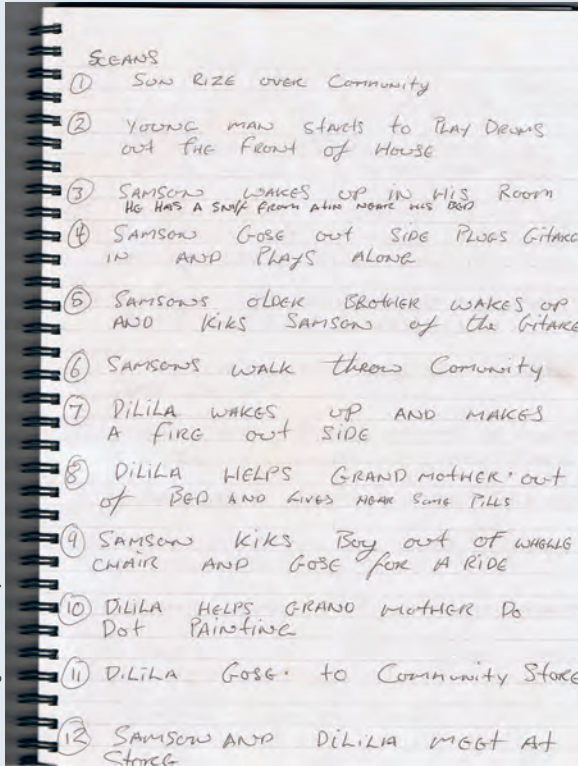 SCEANS
① SUN RIZE OVER Community
② YOUNG MAN STARTS to PLAY DRUMS
out THE FRONT of HOUSE
③ SAMSON WAKES UP IN HIS ROOM
HE HAS A SNIF FROM A TIN NEAR HIS BED
④ SAMSON GOSE out SIDE PLUGS GITARE
IN AND PLAYS ALONG
⑤ SAMSONS OLDER BROTHER WAKES UP
AND KIKS SAMSON of the GITARE
⑥ SAMSONS WALK throw Comunity
⑦ DILILA WAKES UP AND MAKES
A FIRE out SIDE
⑧ DILILA HELPS GRAND MOTHER out
of BED AND GIVES HEAR SOME PILLS
⑨ SAMSON KIKS Boy out OF WHELLE
CHAIR AND GOSE for A RIDE
⑩ DILILA HELPS GRAND MOTHER DO
DOT PAINTING
⑪ DILILA GOSE to Community STORE
⑫ SAMSON AND DILILIA MEET At
STORE